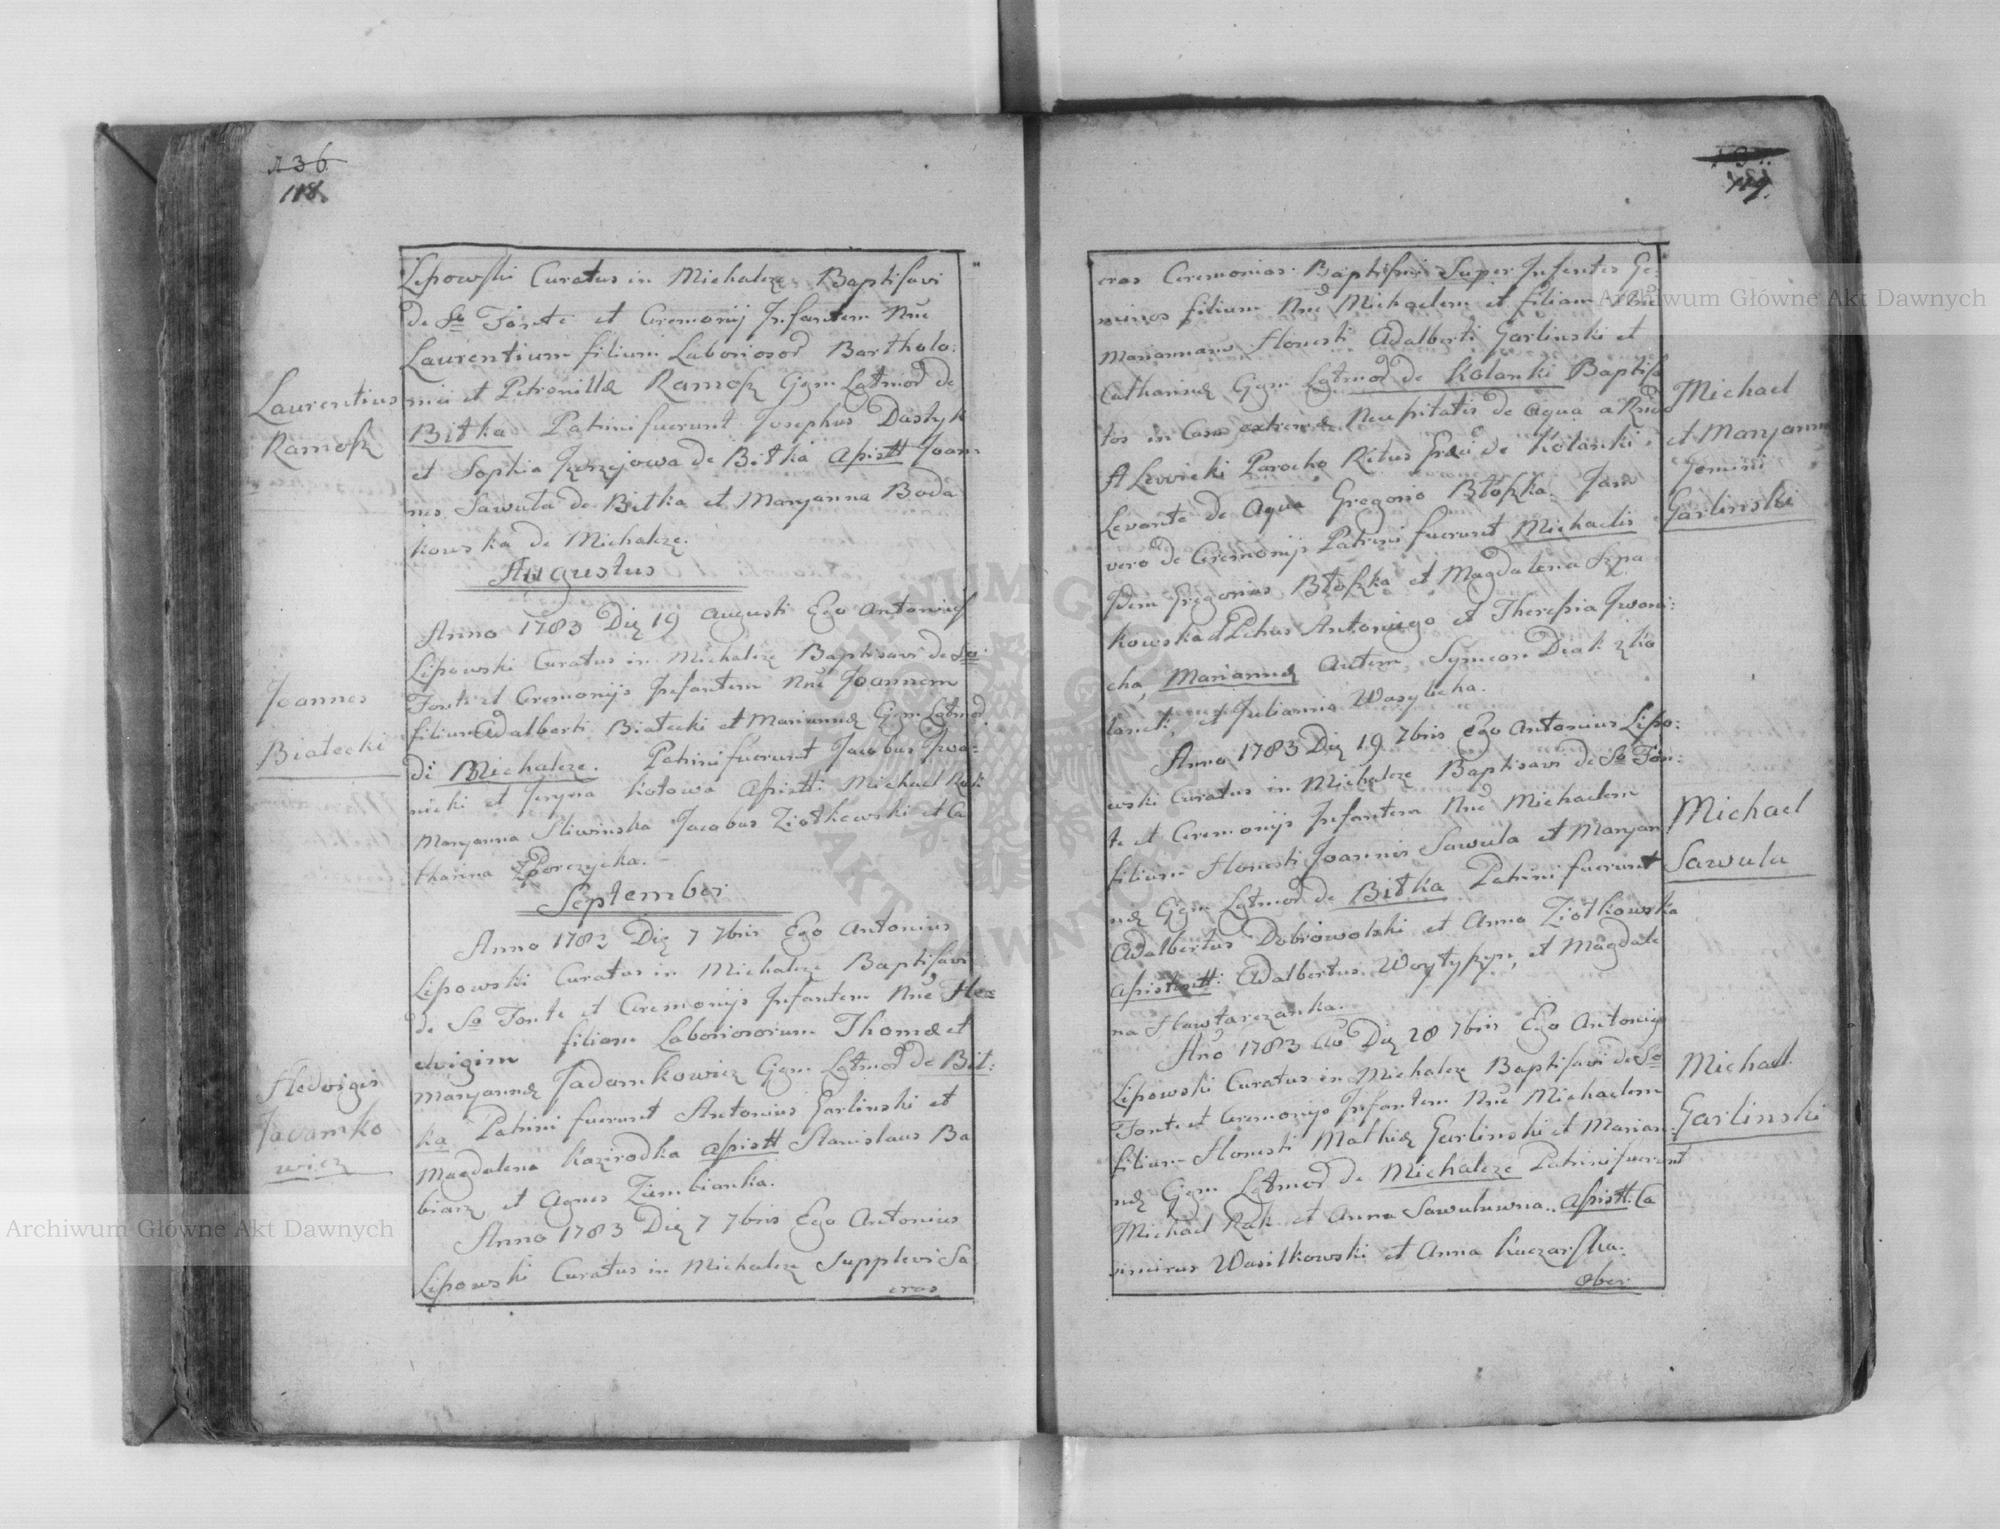 136.
118.
Lipowski Curatus in Michalcze Baptisavi
de So Fonte et Ceremonij Infantem Nne
Laurentium filium Laboriosod Bartholo:
mei et Petronillæ Ramosz Cjgm Lgtmod de
Bitka Patrini fuerunt Josephus Dastyk
et Sophia de Bitka Apistt Joan
nes Sawuła de Bitka et Maryanna Boda
kowska de Michalcze.
Laurentius
Ramosz
Augustus
Anno 1783 Die 19 Augusti Ego Antonius
Lipowski Curatus in Michalcze Baptisavi de So
Fonte et Ceremonijs Infantem Nne Joannem
filium Adalberti Białecki et Mariannæ Cjgm Lgtmod
di Michalcze. Patrini fuerunt Jacobus Iwa:
nicki et Jryna Kotowa Apistt: Michael Rak
Maryanna Sliwinska Jacobus Ziołkowski et Ca
tharina Porczycka.
Joannes
Białecki
September
Anno 1783 Die 7 7bris Ego Antonius
Lipowski Curatus in Michalcze Baptisavi
de So Fonte et Ceremonijs Infantem Nne Hed
dvigim filiam Laboriosorum Thomæ et
Maryannæ Jadamkowicz Cjgm Lgtmod de Bit:
ka Patrini fuerunt Antonius Garlinski et
Magdalena Kazirodka Apistt Stanislaus Ba
biarz, et Agnes Ziembianka.
Hedvigis
Jadamko
wicz
Anno 1783 Die 7 7bris Ego Antonius
Lipowski Curatus in Michalcze Supplevi Sa
cras
119.
cras Ceremonias Baptismi Super Infantes Ge:
minos filium Nne Michaelem et filiam Nne
Mariannam Honesti Adalberti Garlinski et
Catharinæ Cjgm Lgtmod de Kolanki Baptisa
tos in Casu extremæ Necessitatis de Aqua a Rndo
A Levicki Parocho Ritus Græci de Kolanki
Levante de Aqua Gregorio Błoszka. Jam
vero de Ceremonijs Patrini fuerunt Michaelis
Idem Gregorius Błoszka et Magdalena Szpa
kowska Antoniego et Theresia Iwani:
cha, Mariannæ Autem, Symeon Diak z Ko
lanek, et Julianna Wasylicha.
Michael
et Maryanna
Gemini
Garlinski
Anno 1783 Die 19 7bris Ego Antonius Lipo:
wski Curatus in Michalcze Baptisavi de So Fon:
te et Ceremonijs Infantem Nne Michaelem
filium Honesti Joannis Sawula et Maryan
næ Cjgm Lgtmod de Bitka Patrini fuerunt
Adalbertus Dobrowolski et Anna Ziołkowska
Apistentt: Adalbertus et Magdale
na Hawtarczanka.
Michael
Sawula
Ano 1783 Die 28 7bris Ego Antonius
Lipowski Curatus in Michalcze Baptisavi de So
Fonte et Ceremonijs Infantem Nne Michaelem
filium Honesti Mathiæ Garlinski et Marian
næ Cjgm Lgtmod de Michalcze Patrini fuerunt
Michael Rak et Anna Sawuluwna, Apistt. Ca
simirus Wasilkowski et Anna Kaczarska.
8ber
Michael
Garlinski
Archiwum Główne Akt Dawnych
Archiwum Główne Akt Dawnych
ARCHIWUM GŁÓWNE AKT DAWNYCH